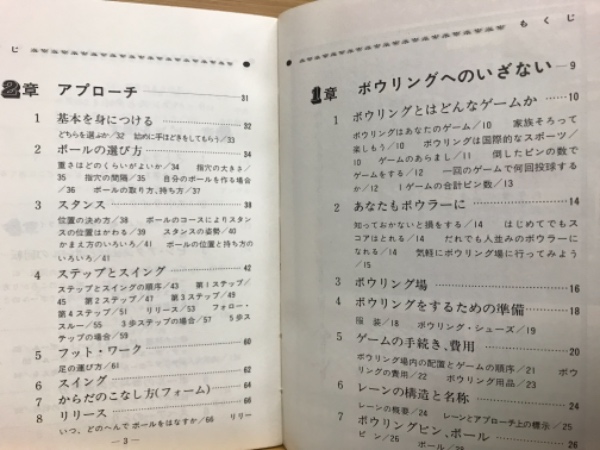 もくじ
1章 ボウリングへのいざない 9
1 ボウリングとはどんなゲームか 10
ボウリングはあなたのゲーム/10 家族そろって
楽しもう/10 ボウリングは国際的なスポーツ/
10 ゲームのあらまし/11 倒したピンの数で
ゲームをする/12 一回のゲームで何回投球する
か/12 1ゲームの合計ピン数/13
2 あなたもボウラーに 14
知っておかないと損をする/14 はじめてでもス
コアはとれる/14 だれでも人並みのボウラーに
なれる/14 気軽にボウリング場に行ってみよう
/15
3 ボウリング場 16
4 ボウリングをするための準備 18
服装/18 ボウリング・シューズ/19
5 ゲームの手続き、費用 20
ボウリング場内の配置とゲームの順序/21 ボウ
リングの費用/22 ボウリング用品/23
6 レーンの構造と名称 24
レーンの概要/24 レーンとアプローチ上の標示/25
7 ボウリングピン、ボール 26
ピン/26 ボール/28
じ
2章 アプローチ 31
1 基本を身につける 32
どちらを選ぶか/32 始めに手ほどきをしてもらう/33
2 ボールの選び方 34
重さはどのくらいがよいか/34 指穴の大きさ/
35 指穴の間隔/35 自分のボールを作る場合
/36 ボールの取り方、持ち方/37
3 スタンス 38
位置の決め方/38 ボールのコースによりスタン
スの位置はかわる/39 スタンスの姿勢/40
かまえ方のいろいろ/41 ボールの位置と持ち方の
いろいろ/41
4 ステップとスイング 42
ステップとスイングの順序/43 第1ステップ/
45 第2ステップ/47 第3ステップ/49
第4ステップ/51 リリース/53 フォロー・
スルー/55 3歩ステップの場合/57 5歩ス
テップの場合/59
5 フット・ワーク 60
足の運び方/61
6 スイング 62
7 からだのこなし方(フォーム) 64
8 リリース 66
いつ、どのへんでボールをはなすか/66 リリー
— 3 —